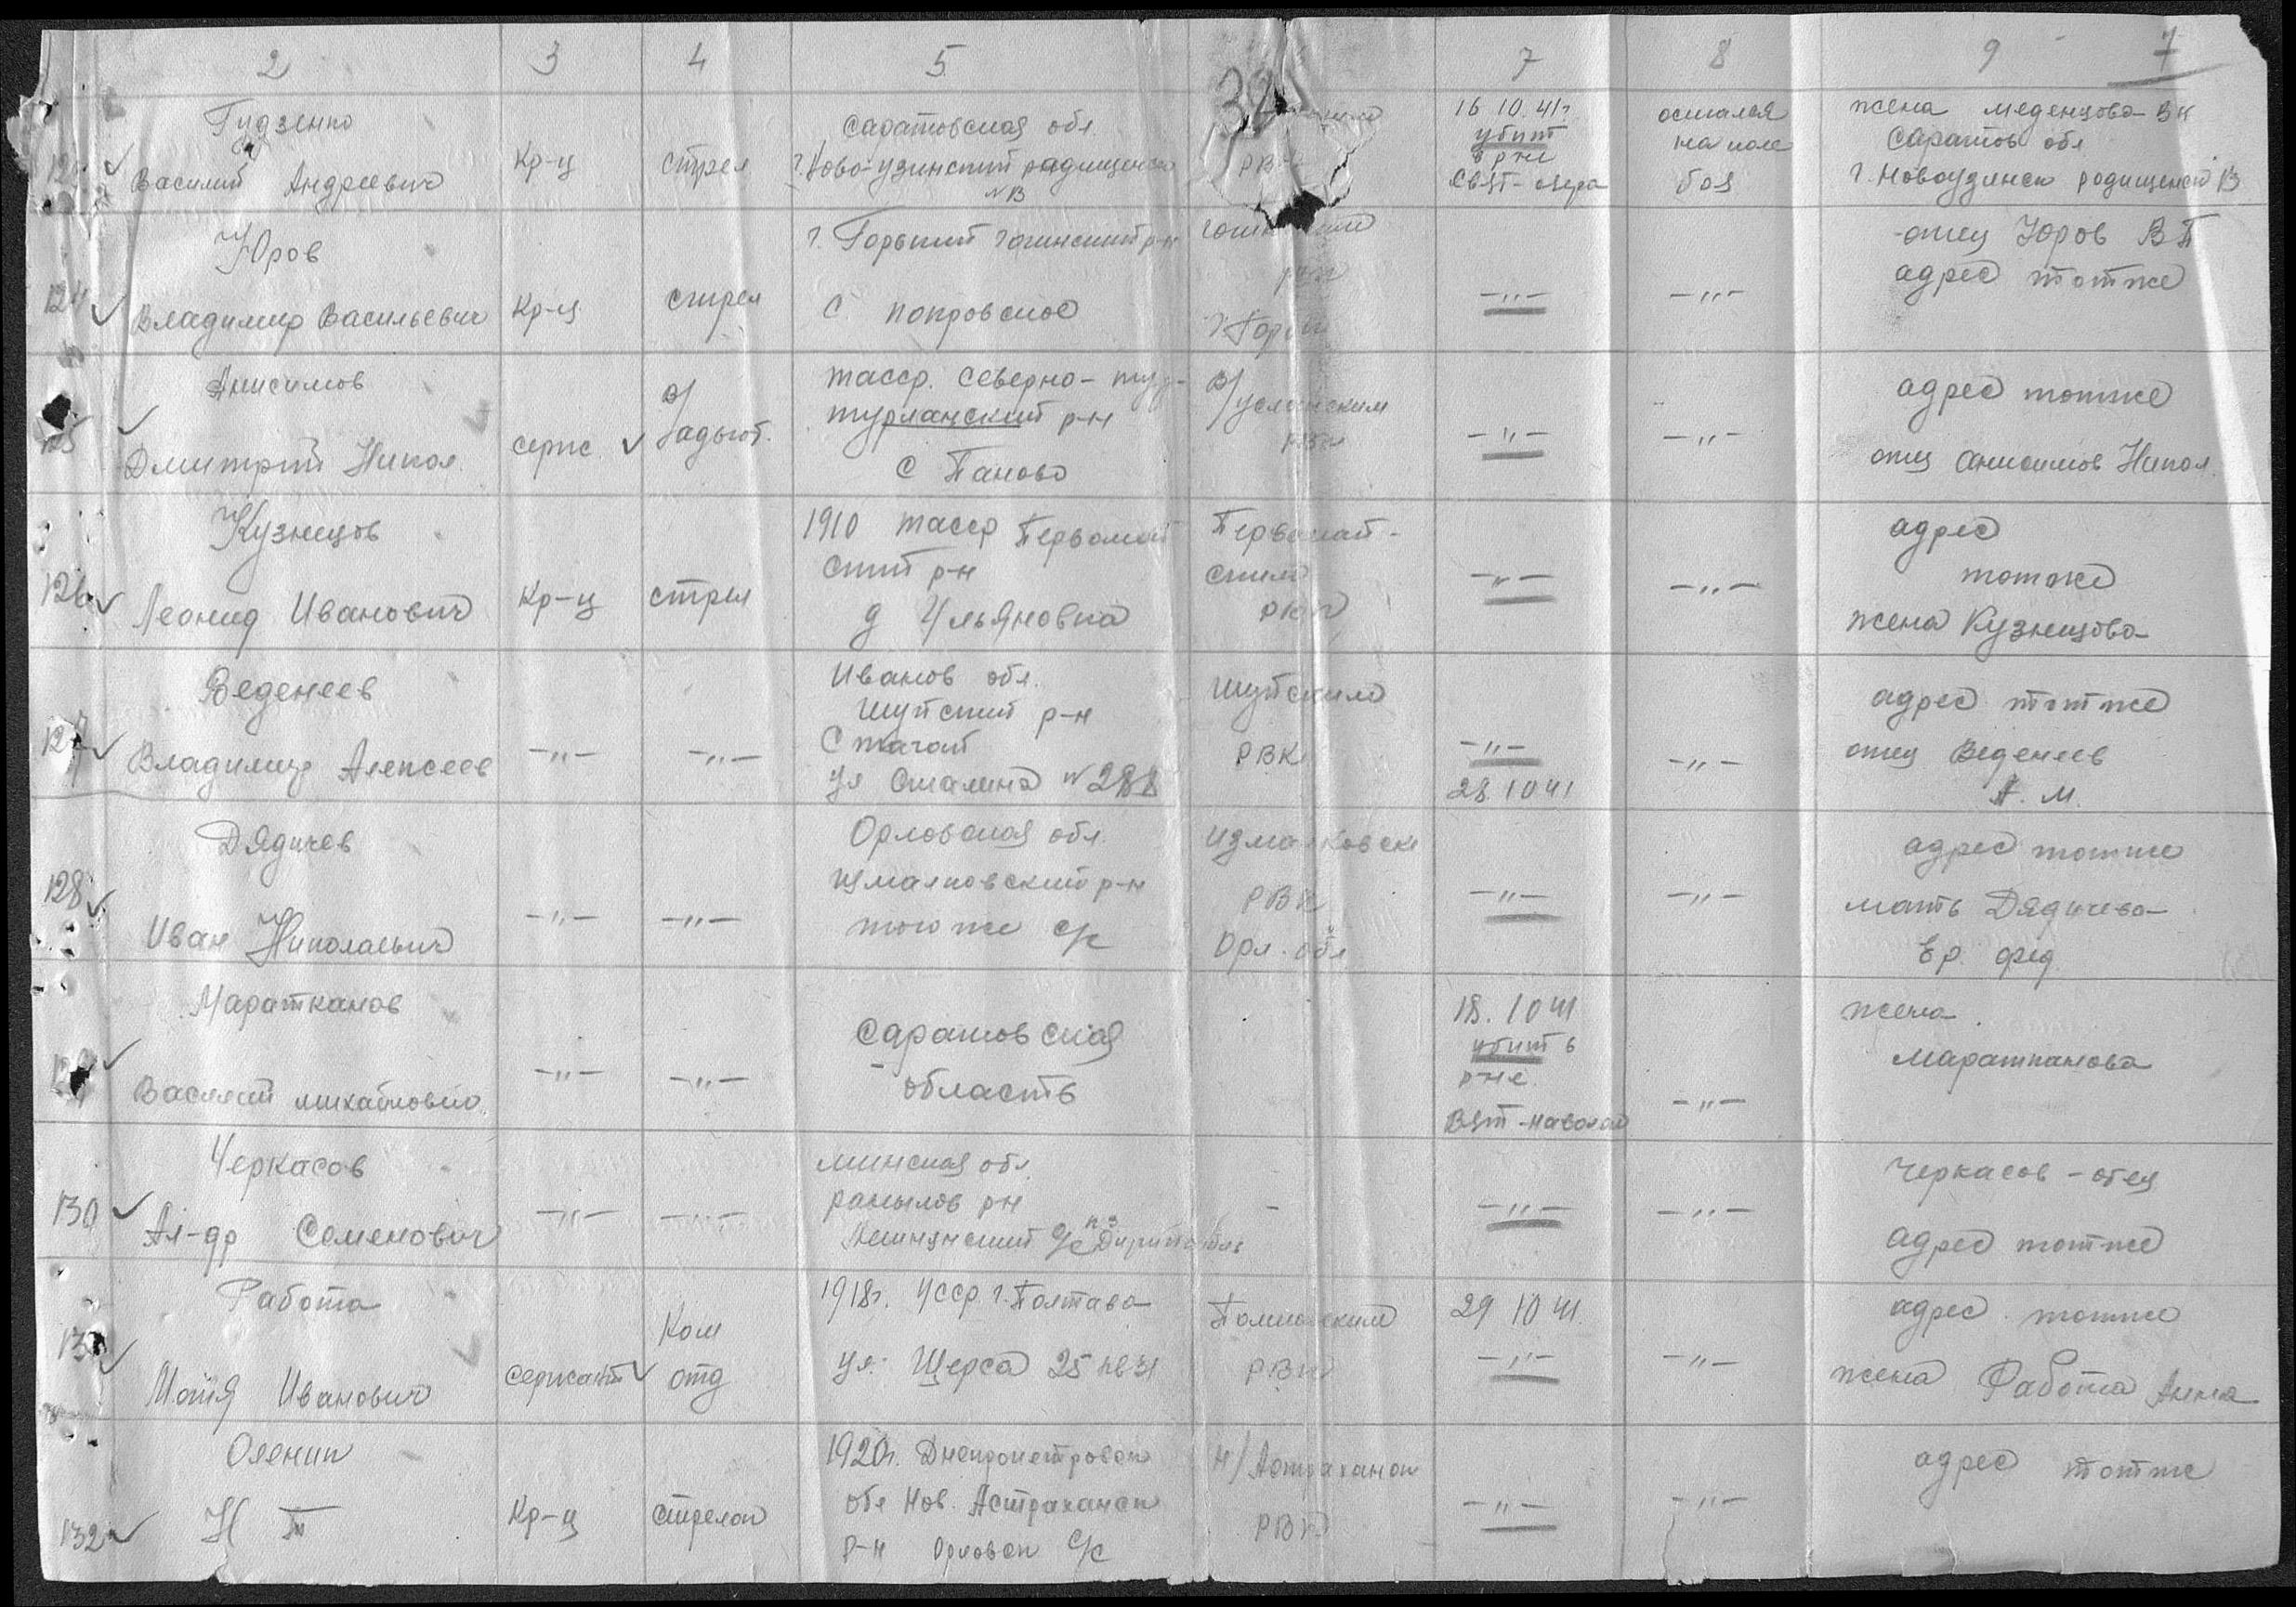 2 3 4 5 7 8 9 7
39
Гидзенко
Василий Андреевич
Кр-ц
стрел
Саратовская обл.
г. Ново-узинский радищенск
N В
РВК
16 10. 41г
убит
в рне
Свят-озера
остался
на поле
боя
жена Меденцова ВК
Саратов обл
г. Новоузинск родищенск В
124
Юров
Владимир Васильевич
Кр-ц
стрел
г. Горький р-н
с покровское
-"-
-"-
отец Юров В П
адрес тотже
125
Анисимов
Дмитрий Никол.
серж.
в/
адьют.
тасср. Северно-
р-н
с Паново
в/услонским
РВК
-"-
-"-
адрес тотже
отец Анисимов Никол.
126
Кузнецов
Леонид Иванович
Кр-ц
стрел
1910 тасср Первомай
ский р-н
д Ульяновка
Первомай-
ским
РВК
-"-
-"-
адрес
тотже
жена Кузнецова
127
Веденеев
Владимир Алексеев
-"-
-"-
Иванов обл.
Шуйский р-н
ул Сталина N 288
Шуйским
РВК
-"-
28.10 41
-"-
адрес тотже
отец Веденеев
А. М.
128
Дядичев
Иван Николаевич
-"-
-"-
Орловская обл.
Измалковский р-н
того же с/с
Измалковск
РВК
Орл. обл
-"-
-"-
адрес тотже
мать Дядичева
Ер. фед
129
Маратканов
Василий михайлович
-"-
-"-
Саратовская
область
18. 10 41
убит в
рне.
Вят-наволок
-"-
жена
Маратканова
130
Черкасов
Ал-др Семенович
-"-
-"-
минская обл.
р-н
с/с
-
-"-
-"-
Черкасов - отец
адрес тотже
Работа
Иванович
сержант
Ком
отд
1918г. Усср г. Полтава
ул. Щерса 25 кв 31
Полтавским
РВК
29 10 41.
-"-
-"-
адрес тотже
жена Работа Анна
132
Оленик
Кр-ц
стрелок
1920г. Днепропетровск
обл Нов. Астраханск
р-н Орловск с/с
Н/Астраханск
РВК
-"-
-"-
адрес тотже